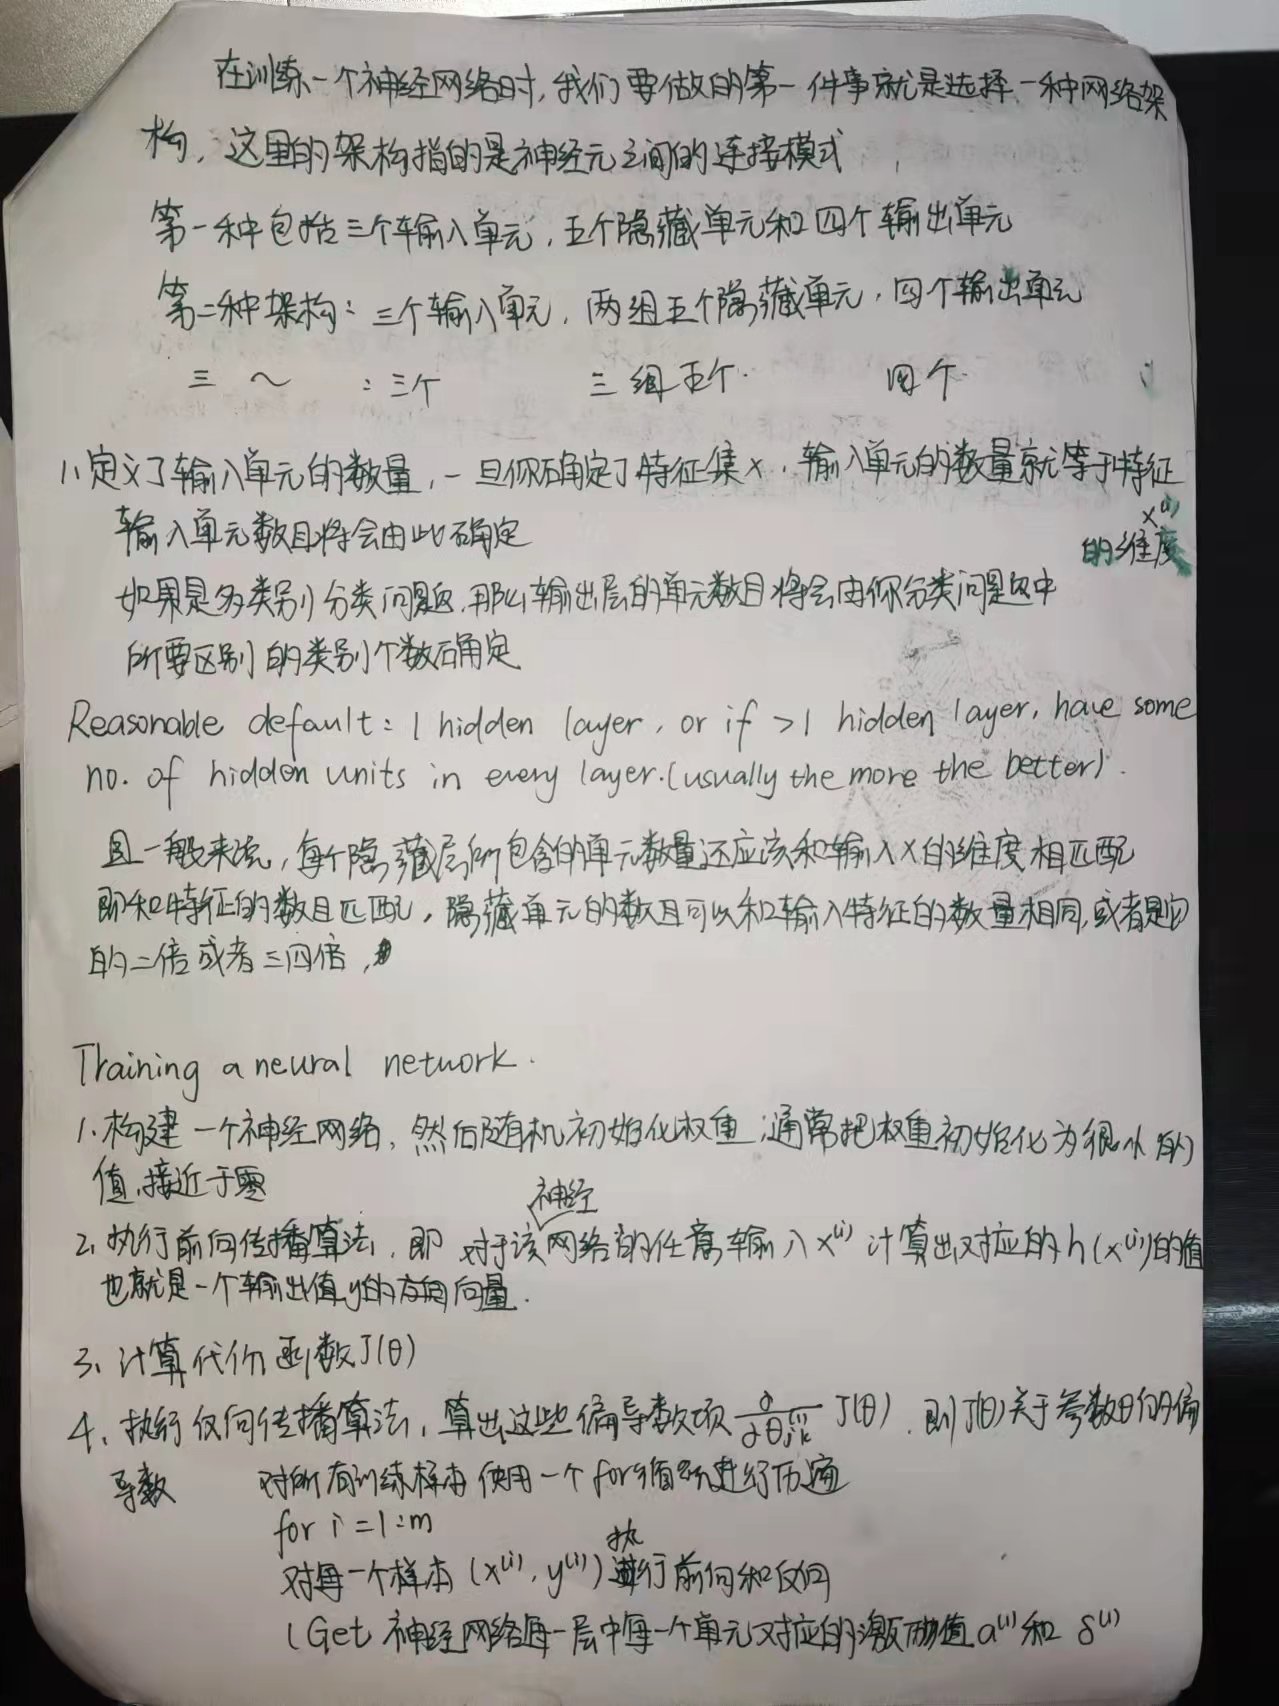 在训练一个神经网络时,我们要做的第一件事就是选择一种网络架
构,这里的架构指的是神经元之间的连接模式
第一种包括三个输入单元,五个隐藏单元和四个输出单元
第二种架构:三个输入单元,两组五个隐藏单元,四个输出单元
三 ~ :三个 三组五个. 四个.
1、定义了输入单元的数量,一旦你确定了特征集x,输入单元的数量就等于特征
x⁽ⁱ⁾
输入单元数目将会由此确定 的维度
如果是多类别分类问题,那么输出层的单元数目将会由你分类问题中
所要区别的类别个数确定
Reasonable default: 1 hidden layer, or if >1 hidden layer, have some
no. of hidden units in every layer.(usually the more the better).
且一般来说,每个隐藏层所包含的单元数量还应该和输入x的维度相匹配
即和特征的数目匹配,隐藏单元的数目可以和输入特征的数量相同,或者是它
的二倍或者三四倍,
Training a neural network.
1、构建一个神经网络,然后随机初始化权重;通常把权重初始化为很小的
值,接近于零
神经
2、执行前向传播算法,即对于该网络的任意输入x⁽ⁱ⁾计算出对应的h(x⁽ⁱ⁾)的值
也就是一个输出值y的方向向量.
3、计算代价函数J(θ)
4、执行反向传播算法,算出这些偏导数项 ∂/∂θⱼₖ⁽ˡ⁾ J(θ).则J(θ)关于参数θ的偏
导数 对所有训练样本使用一个for循环进行历遍
for i=1:m
执
对每一个样本(x⁽ⁱ⁾,y⁽ⁱ⁾)行前向和反向
(Get 神经网络每一层中每一个单元对应的激励值a⁽ˡ⁾和δ⁽ˡ⁾